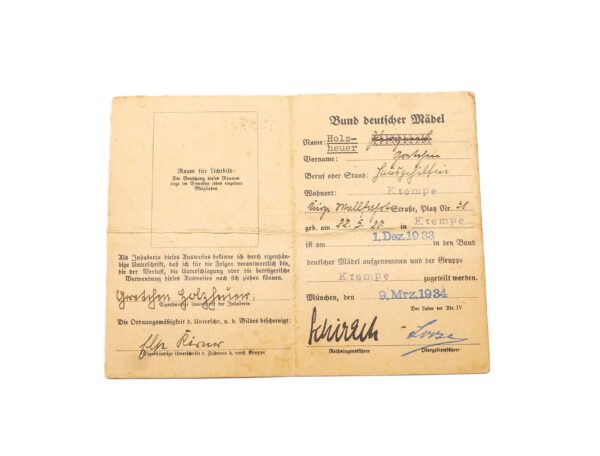 Raum für Lichtbild:
Die Benutzung dieses Raumes
liegt im Ermessen jedes einzelnen
Mitgliedes.
Als Inhaberin dieses Ausweises erkenne ich durch eigenhän-
dige Unterschrift, daß ich für die Folgen verantwortlich bin,
die der Verlust, die Unterschlagung oder die betrügerische
Verwendung dieses Ausweises nach sich ziehen können.
Gretchen Holzheuer.
Eigenhändige Unterschrift der Inhaberin
Die Ordnungsmäßigkeit d. Unterschr. u. d. Bildes bescheinigt:
Else Körner
Eigenhändige Unterschrift d. Führerin d. Gruppe
Bund deutscher Mädel
Name: Holz-
heuer
Vorname: Gretchen
Beruf oder Stand: Hausgehilfin
Wohnort: Krempe
Straße, Platz Nr. 38
geb. am 22.5.20 in Krempe
ist am 1. Dez. 1933 in den Bund
deutscher Mädel aufgenommen und der Gruppe
Krempe zugeteilt worden.
München, den 9. Mrz. 1934
Der Leiter der Abt. IV
Schirach
Reichsjugendführer Obergebietsführer